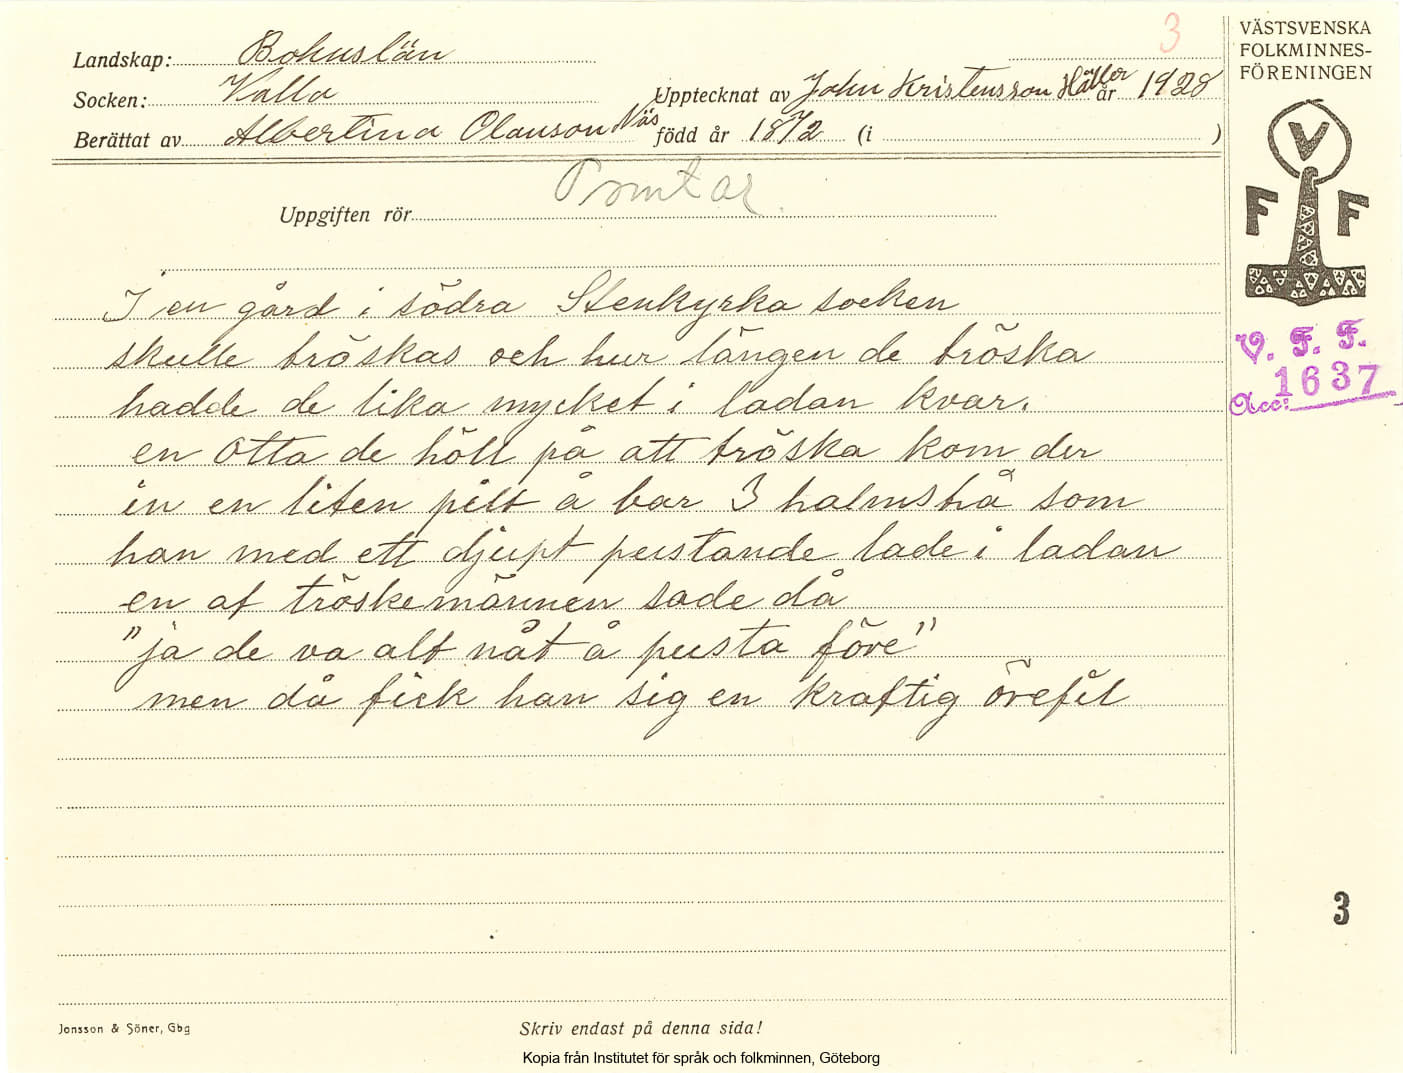 3
Landskap: Bohuslän
Socken: Valla
Upptecknat av John Kristensson Häller år 1928
Berättat av Albertina Olauson Näs född år 1872 (i )
Uppgiften rör Tomtar.
I en gård i södra Stenkyrka socken
skulle tröskas och hur längen de tröska
hadde de lika mycket i ladan kvar.
en otta de höll på att tröska kom der
in en liten pilt å bar 3 halmstrå som
han med ett djupt pustande lade i ladan
en af tröskemännen sade då
"ja de va alt nåt å pusta före"
men då fick han sig en kraftig örefil
VÄSTSVENSKA
FOLKMINNES-
FÖRENINGEN
V
F F
V. F. F.
Acc: 1637
3
Jonsson & Söner, Gbg
Skriv endast på denna sida!
Kopia från Institutet för språk och folkminnen, Göteborg